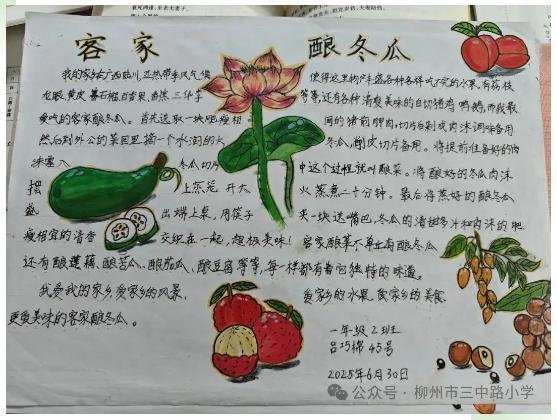 客家 酿冬瓜
我的家乡在广西临川,亚热带季风气候 使得这里物产丰盛各种各样吃不完的水果,有荔枝
龙眼,黄皮,番石榴,百香果,香蕉,三华李 等等,还有各种清爽美味的白切猪鸡鸭鹅,而我最
爱吃的客家酿冬瓜。首先选取一块肥瘦相 间的猪前胛肉,切片后剁成肉沫调味备用
然后到外公的菜园里摘一个水润的大 冬瓜,削皮切片备用。将提前准备好的肉
沫塞入 冬瓜切片 中这个过程就叫酿菜。将酿好的冬瓜肉沫
摆 上蒸笼,开大 火蒸煮二十分钟。最后将蒸好的酿冬瓜
盛 出端上桌,用筷子 夹一块送嘴巴,冬瓜的清甜多汁和肉沫的肥
瘦相宜的清香 交织在一起,超极美味! 客家酿菜不单止有酿冬瓜
还有酿莲藕,酿苦瓜,酿茄瓜,酿豆腐等等,每一样都有着它独特的味道。
我爱我的家乡,爱家乡的风景, 爱家乡的水果,爱家乡的美食,
更爱美味的客家酿冬瓜。
一年级2班
吕巧绵 45号
2025年6月30日
公众号·柳州市三中路小学